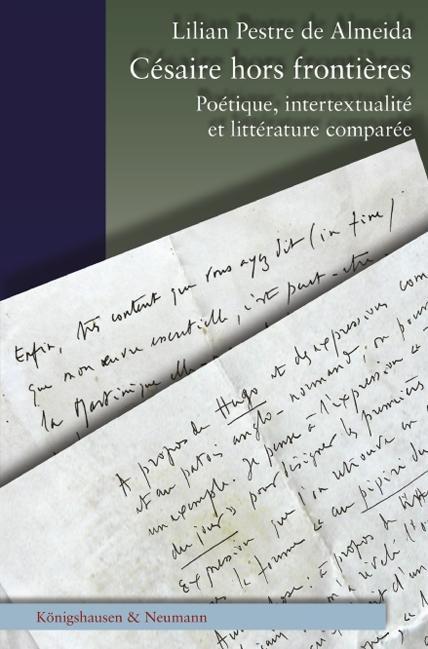 Lilian Pestre de Almeida
Césaire hors frontières
Poétique, intertextualité
et littérature comparée
Enfin, très content que vous ayez dit (in fine)
que mon œuvre essentielle, c'est peut-être
la Martinique elle
A propos de Hugo et des expressions
et au patois anglo-normand, on
un exemple. Je pense à l'expression
du jour » pour désigner les premières
expression que l'on retrouve
la forme « au pipiri du
à propos de
Königshausen & Neumann